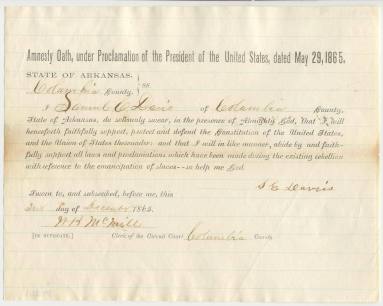 Amnesty Oath, under Proclamation of the President of the United States, dated May 29, 1865.
STATE OF ARKANSAS,
Columbia County. } ss
I Samuel C Davis of Columbia County,
State of Arkansas, do solemnly swear, in the presence of Almighty God, that I will
henceforth faithfully support, protect and defend the Constitution of the United States,
and the Union of States thereunder; and that I will in like manner, abide by and faith-
fully support all laws and proclamations which have been made during the existing rebellion
with reference to the emancipation of slaves—so help me God.
S C Davis
Sworn to, and subscribed, before me, this
day of December 1865.
Clerk of the Circuit Court, Columbia County.